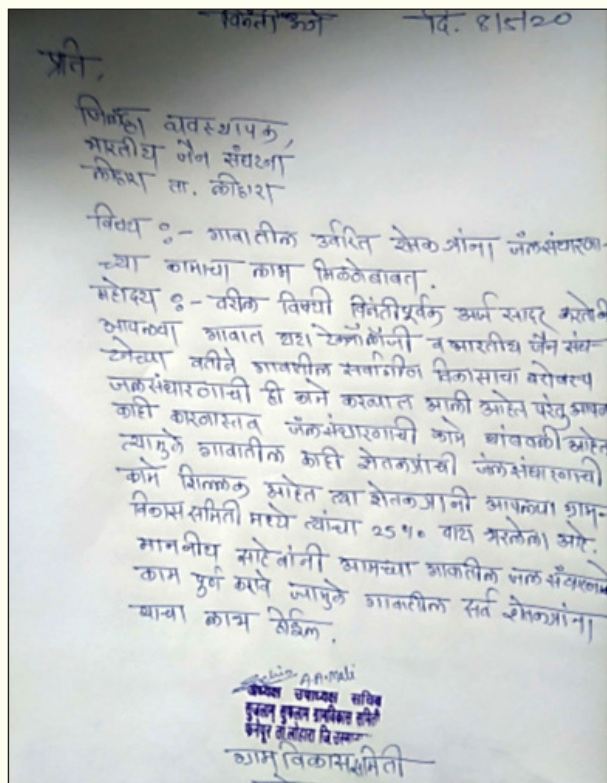 विनंती अर्ज दि. 8/5/20
प्रति,
जिल्हा व्यवस्थापक,
भारतीय जैन संघटना
लोहारा ता. लोहारा
विषय :- गावातील उर्वरित शेतकऱ्यांना जलसंधारणा-
च्या कामाचा लाभ मिळणेबाबत.
महोदय :- वरील विषयी विनंतीपूर्वक अर्ज सादर करतो की
आपल्या गावात टेक्नॉलॉजी व भारतीय जैन संघ-
टनेच्या वतीने गावातील सर्वांगीण विकासाचा बरोबरच
जलसंधारणाची ही कामे करण्यात आली आहेत परंतु आपण
काही कारणास्तव जलसंधारणाची कामे थांबवली आहेत
त्यामुळे गावातील काही शेतकऱ्यांची जलसंधारणाची
कामे शिल्लक आहेत त्या शेतकऱ्यांनी आपल्या ग्राम-
विकास समिती मध्ये त्यांचा 25% वाटा भरलेला आहे.
माननीय साहेबांनी आमच्या गावातील जल संधारणाचे
काम पुर्ण करावे ज्यामुळे गावातील सर्व शेतकऱ्यांना
याचा लाभ होईल.
A.A.Mali
अध्यक्ष उपाध्यक्ष सचिव
सुजलाम सुफलाम ग्रामविकास समिती
ता.लोहारा जि.
ग्रामविकास समिती